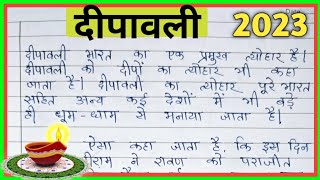 दीपावली 2023
दीपावली भारत का एक प्रमुख त्योहार है।
दीपावली को दीपों का त्योहार भी कहा
जाता है। दीपावली का त्योहार पूरे भारत
सहित अन्य कई देशों में भी बड़े
ही धूम-धाम से मनाया जाता है।
ऐसा कहा जाता है, कि इस दिन
श्रीराम ने रावण को पराजित